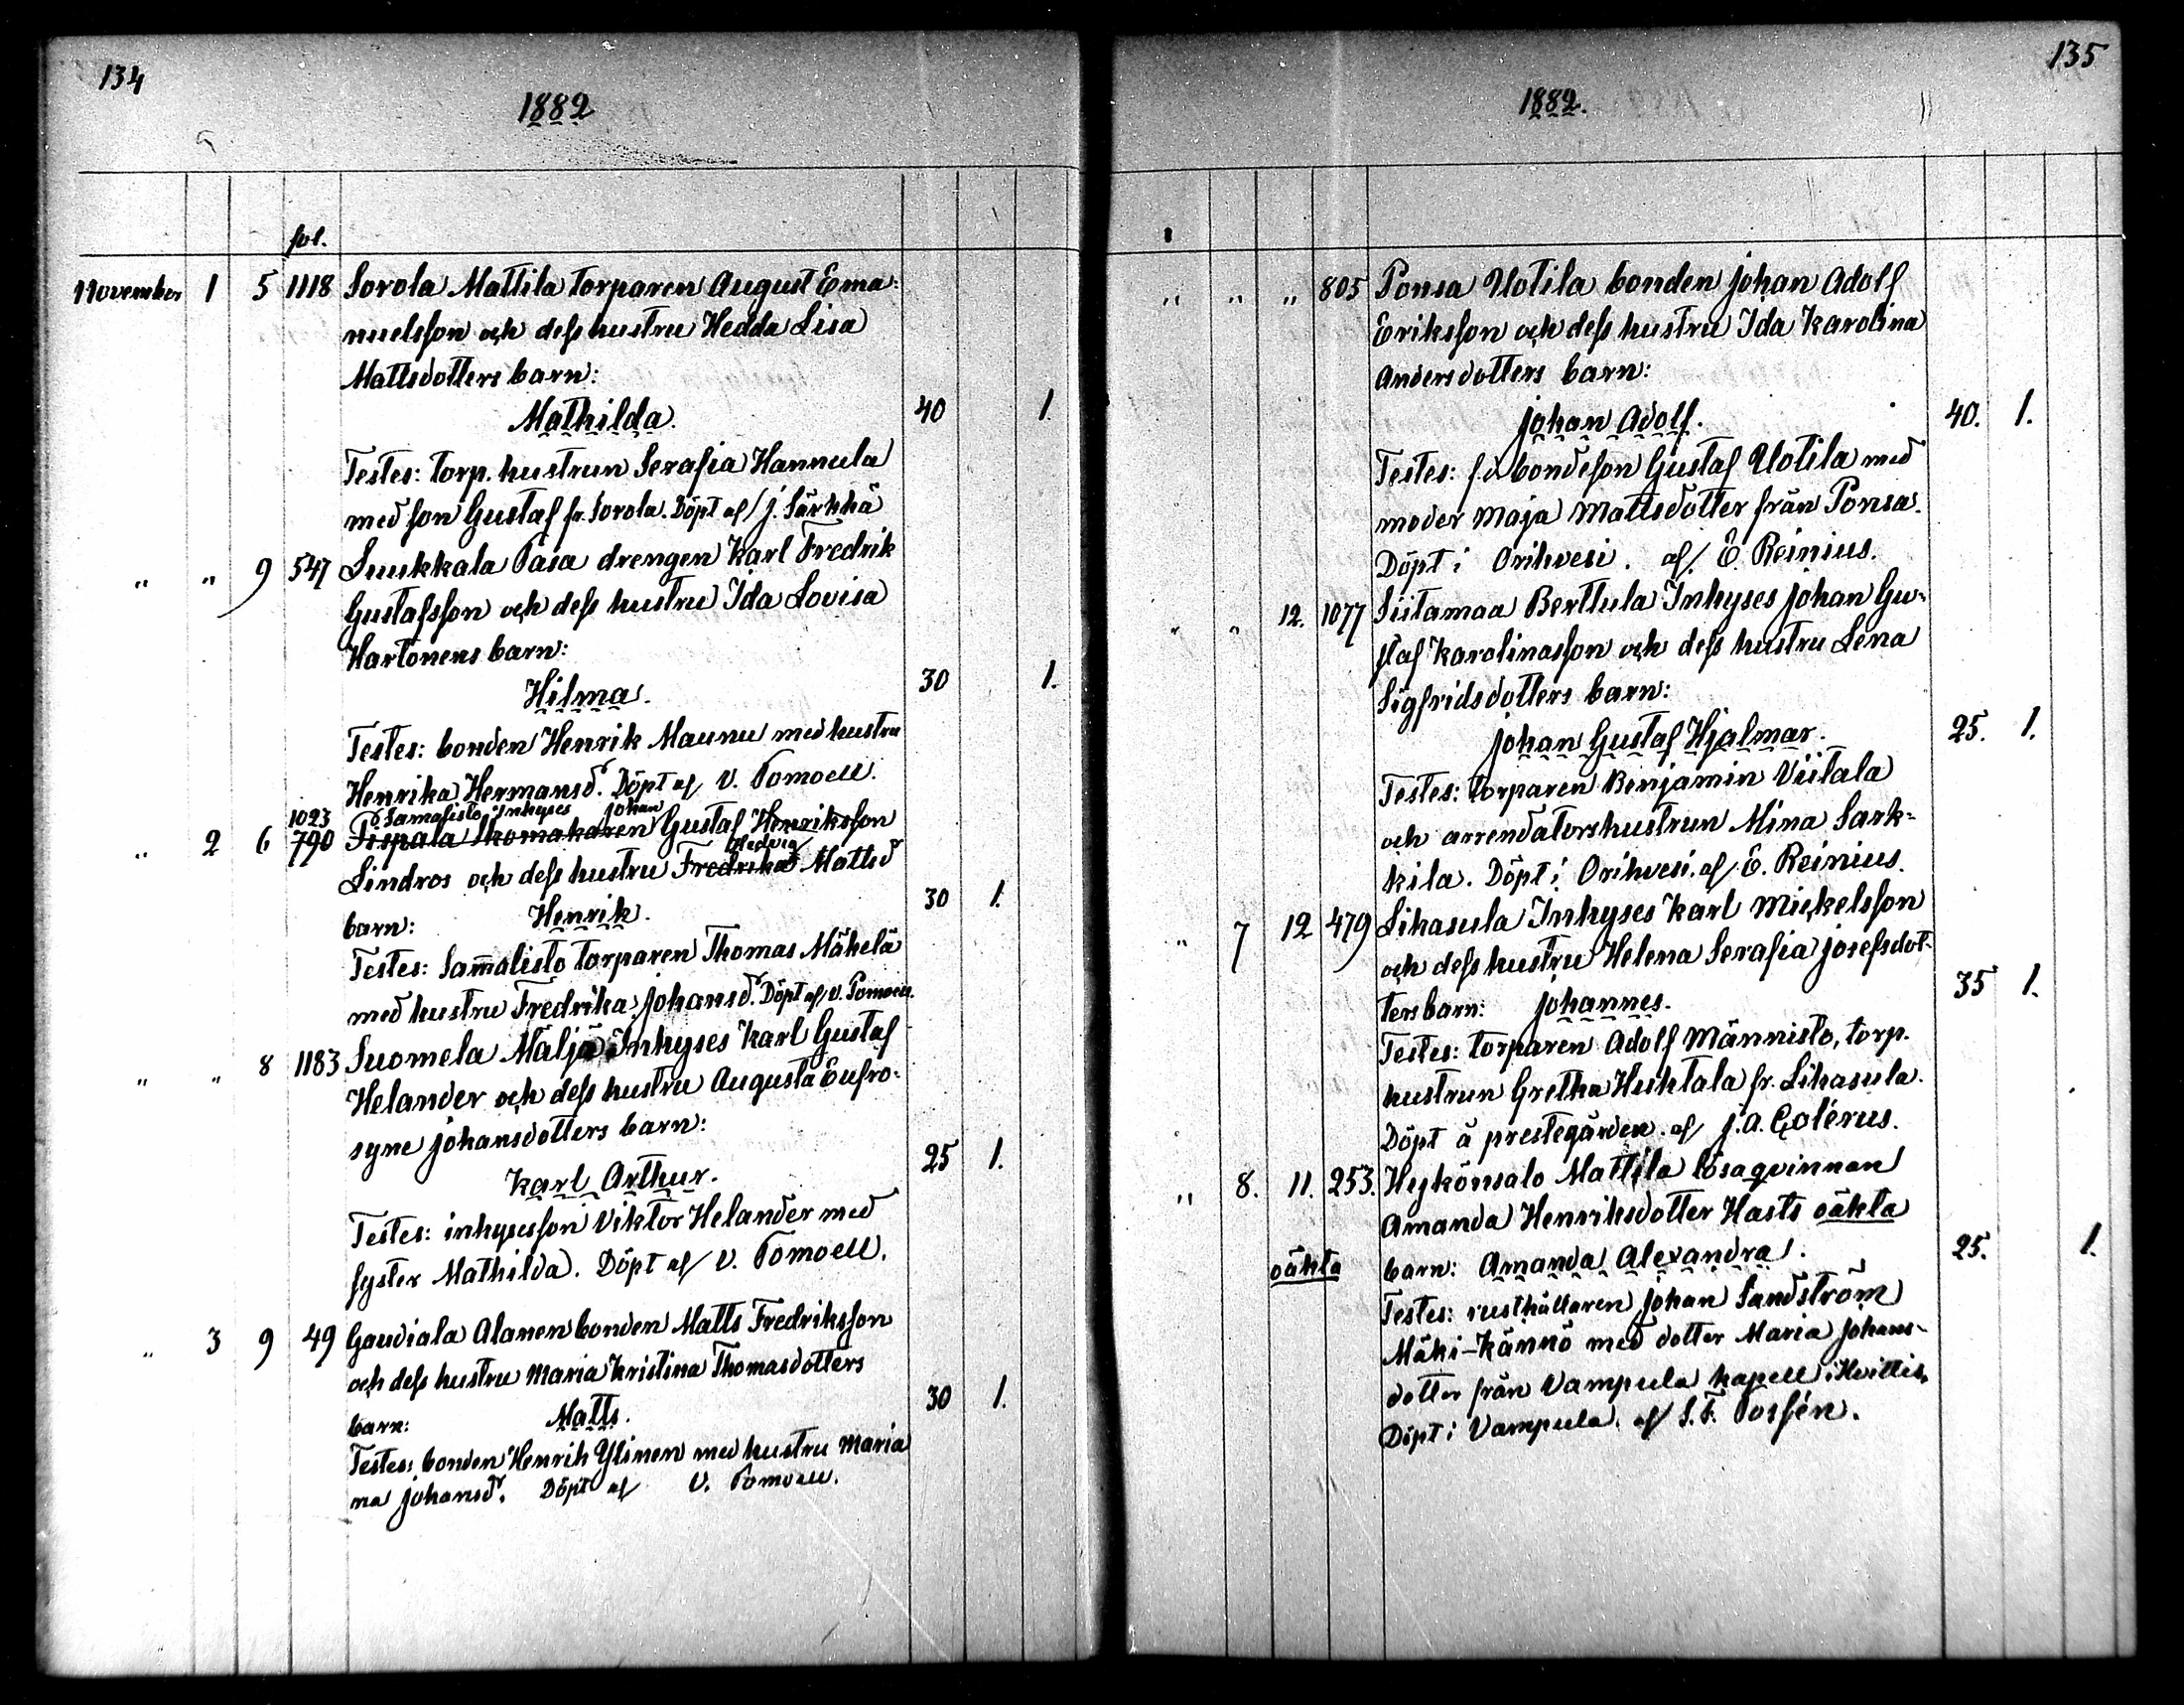 134
1882
fol.
November 1 5 1118 Sorola Mattila torparen August Ema:
nuelsson och dess hustru Hedda Lisa
Mattsdotters barn:
Mathilda. 40 1.
Testes: torp. hustrun Serafia Hannula
med son Gustaf fr. Sorola. Döpt af J. Särkkä
" " 9 547 Suukkala Pasa drengen Karl Fredrik
Gustafsson och dess hustru Ida Lovisa
Hartonens barn:
Hilma. 30 1.
Testes: bonden Henrik Maunu med hustru
Henrika Hermansd. Döpt af V. Pomoell.
1023 Samalisto Inhyses Johan
" 2 6 790 Tispala skomakaren Gustaf Henriksson
Hedvig
Lindros och dess hustru Fredrika Mattsd
barn: Henrik. 30 1.
Testes: Sam̄alisto torparen Thomas Mäkelä
med hustru Fredrika Johansd. Döpt af V. Pomoell.
" " 8 1183 Suomela Mäljä Inhyses Karl Gustaf
Helander och dess hustru Augusta Eufro-
syne Johansdotters barn:
Karl Arthur. 25 1.
Testes: inhysesson Viktor Helander med
syster Mathilda. Döpt af V. Pomoell.
" 3 9 49 Gaudiala Alanen bonden Matts Fredriksson
och dess hustru Maria Kristina Thomasdotters
barn: Matts. 30 1.
Testes: bonden Henrik Ylinen med hustru Maria
na Johansd. Döpt af V. Pomoell.
135
1882.
" " " 805 Ponsa Uotila bonden Johan Adolf
Eriksson och dess hustru Ida Karolina
Andersdotters barn:
Johan Adolf. 40. 1.
Testes: f.d. bondeson Gustaf Uotila med
moder Maja Mattsdotter från Ponsa.
Döpt i Orihvesi. af E. Reinius.
" " 12. 1077 Siitamaa Berttula Inhyses Johan Gu-
staf Karolinasson och dess hustru Lena
Sigfridsdotters barn:
Johan Gustaf Hjalmar. 25. 1.
Testes: torparen Benjamin Viitala
och arrendatorshustrun Mina Sark-
kila. Döpt i Orihvesi. af E. Reinius.
" 7 12 479 Likasula Inhyses Karl Mickelsson
och dess hustru Helena Serafia Josefsdot-
ters barn: Johannes. 35 1.
Testes: torparen Adolf Männisto, torp.
hustrun Gretha Huhtala fr. Likasula.
Döpt å prestegården. af J. A. Cotérus.
" 8. 11. 253. Heykönsalo Mattila lösaqvinnan
Amanda Henriksdotter Hasts oäkta
oäkta barn: Amanda Alexandra. 25. 1.
Testes: rusthållaren Johan Sandström
Mäki-Kännö med dotter Maria Johans-
dotter från Vampula kapell i Hvittis.
Döpt i Vampula. af S. F. Forsén.